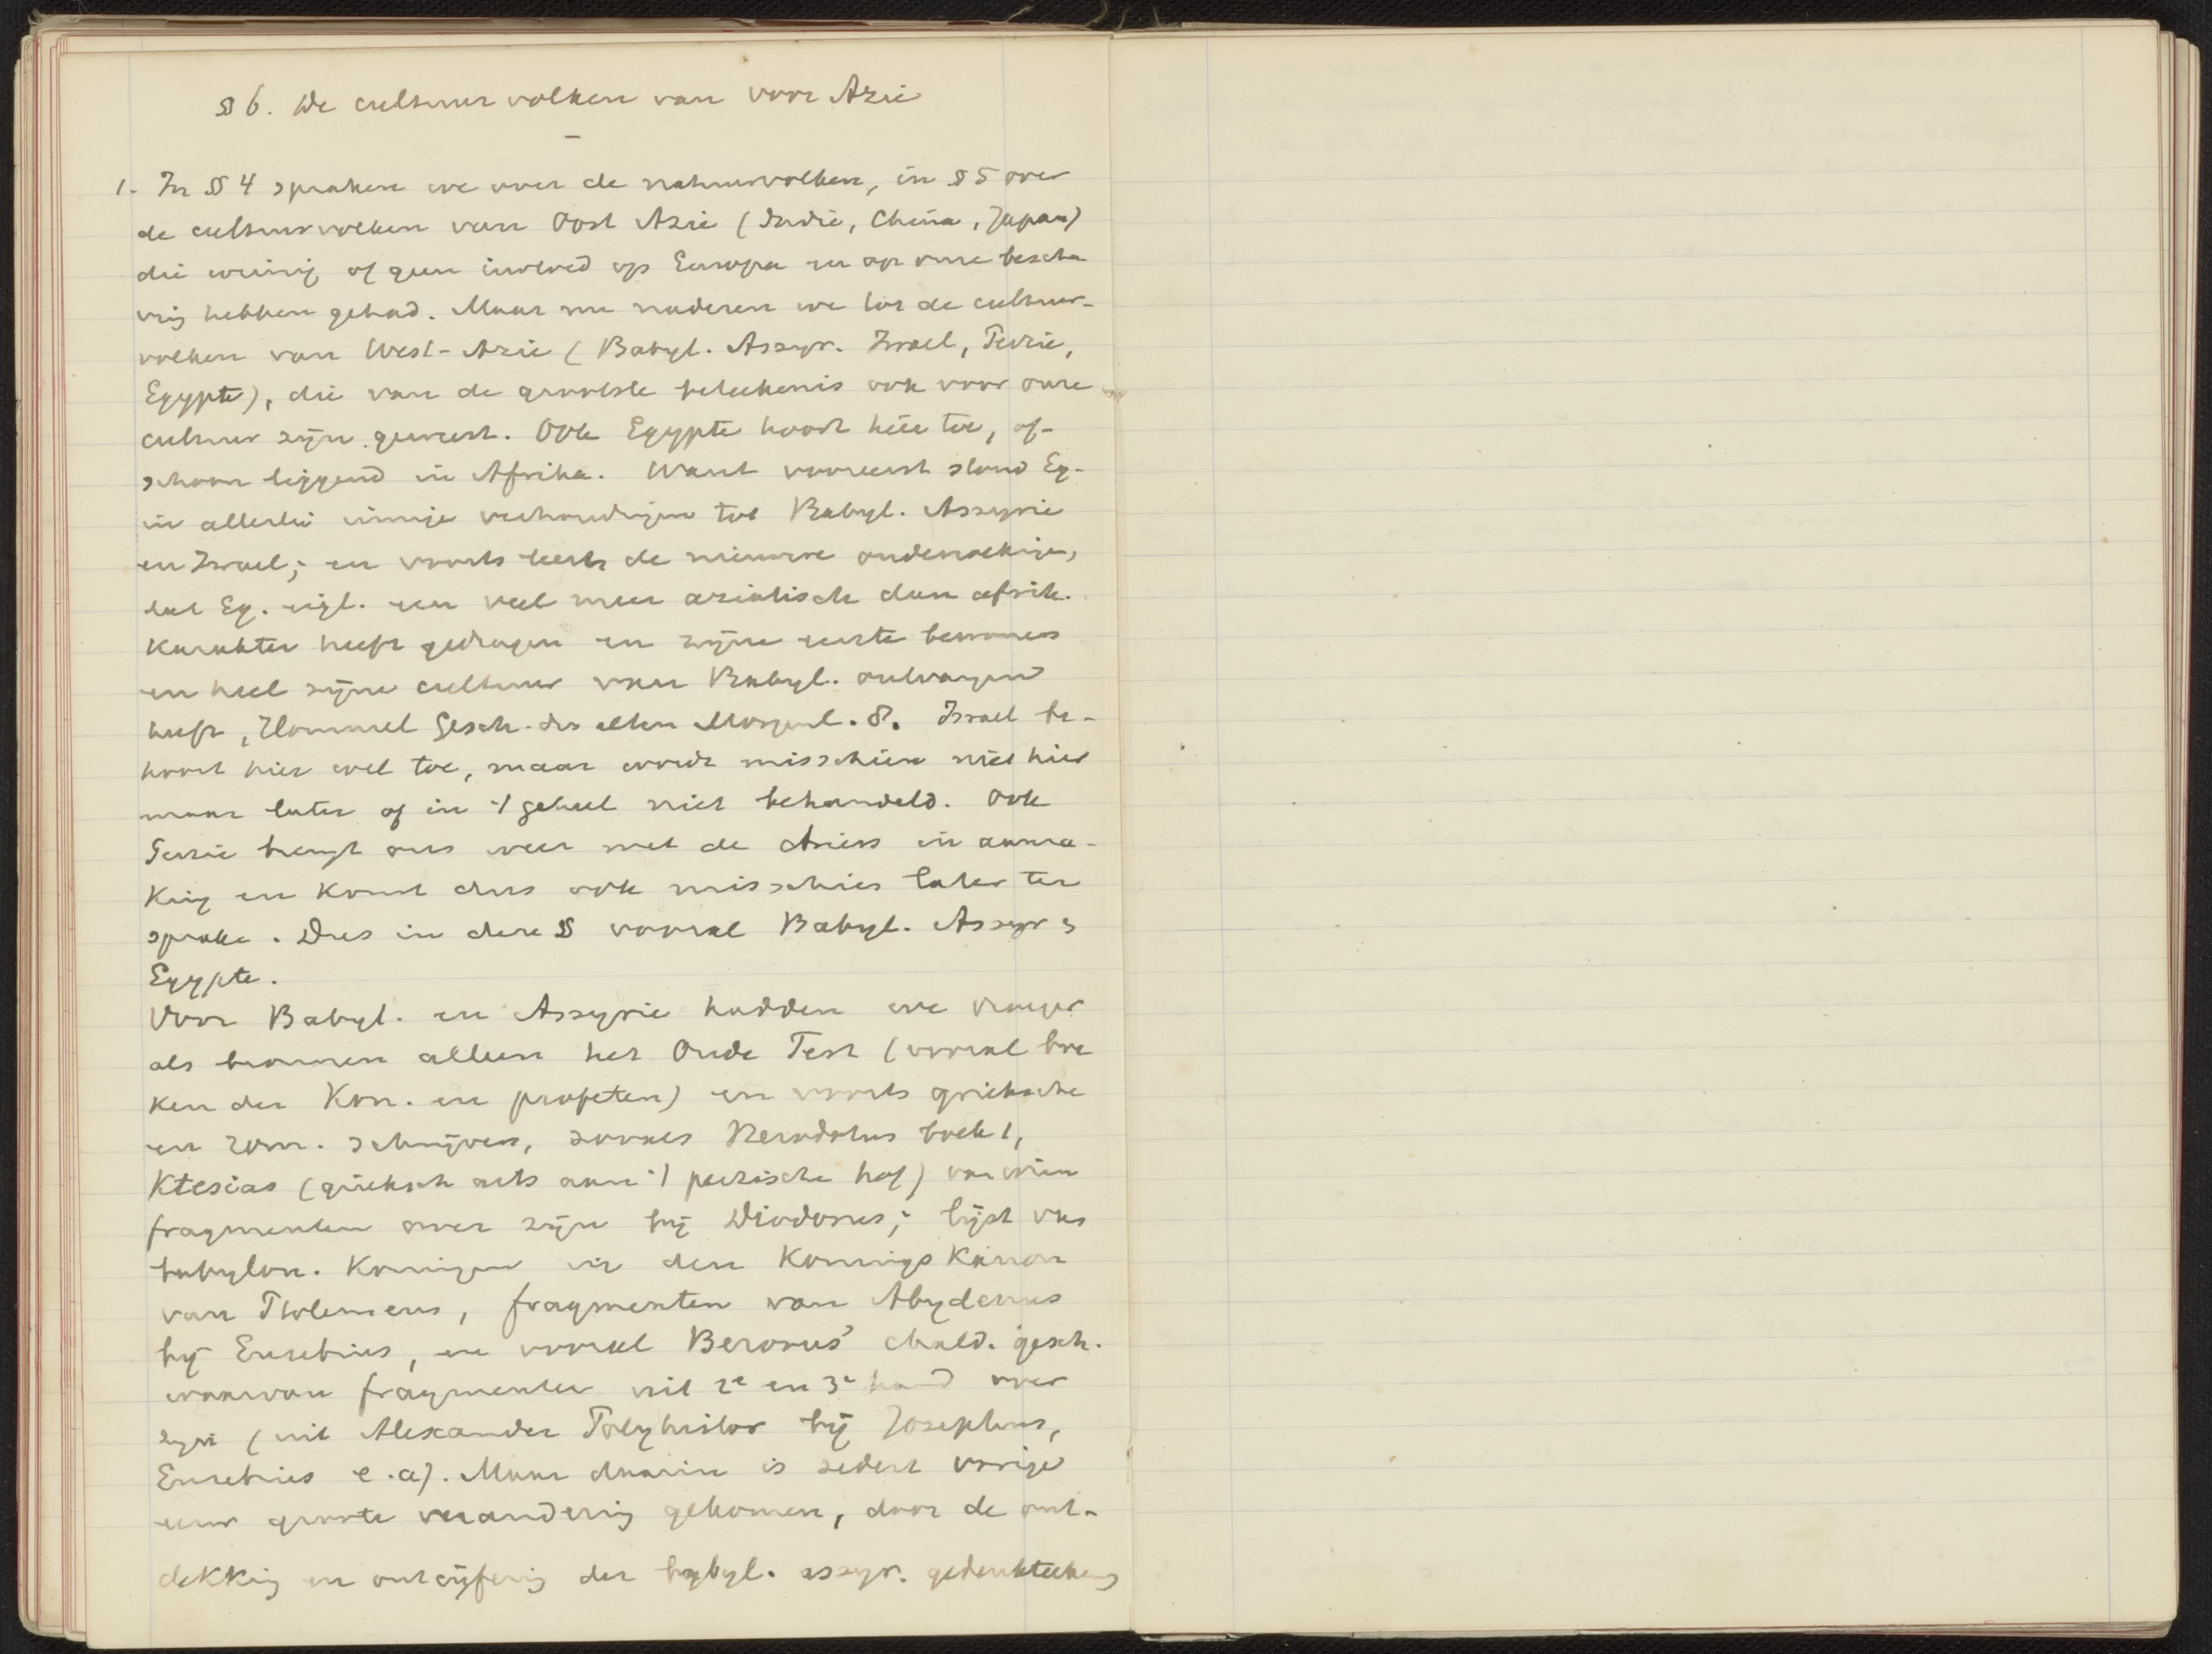 § 6. De cultuurvolken van Voor Azie
1. In § 4 spraken we over de natuurvolken, in § 5 over
de cultuurvolken van Oost Azie (Indie, China, Japan)
die weinig of geen invloed op Europa en op onze bescha
ving hebben gehad. Maar nu naderen we tot de cultuur-
volken van West-Azie (Babyl. Assyr. Israel, Perzie,
Egypte), die van de grootste beteekenis ook voor onze
cultuur zijn geweest. Ook Egypte hoort hier toe, of-
schoon liggend in Afrika. Want vooreerst stond Eg.
in allerlei innige verhoudingen tot Babyl. Assyrie
en Israel; en voorts leert de nieuwere onderzoeking,
dat Eg. eigl. een veel meer aziatisch dan afrik.
Karakter heeft gedragen en zijne eerste bewoners
en heel zijne cultuur van Babyl. ontvangen
heeft, Hommel Gesch. des alten Morgenl. 8. Israel be-
hoort hier wel toe, maar wordt misschien niet hier
maar later of in 't geheel niet behandeld. Ook
Perzie brengt ons weer met de Ariers in aanra-
king en komt dus ook misschien later ter
sprake. Dus in deze § vooral Babyl. Assyr &
Egypte.
Voor Babyl. en Assyrie hadden we vroeger
als bronnen alleen het Oude Test (vooral boe
ken der Kon. en profeten) en voorts grieksche
en rom. schrijvers, zooals Herodotus boek 1,
Ktesias (grieksch arts aan 't perzische hof) van wien
fragmenten over zijn bij Diodorus; lijst van
babylon. Koningen in den Konings Kanon
van Ptolemeus, fragmenten van Abydenus
bij Eusebius, en vooral Berosus' chald. gesch.
waarvan fragmenten uit 2e en 3e hand over
zijn (uit Alexander Polyhistor bij Josephus,
Eusebius e.a). Maar daarin is sedert vorige
eeuw groote verandering gekomen, door de ont-
dekking en ontcijfering der babyl. assyr. gedenkteekens